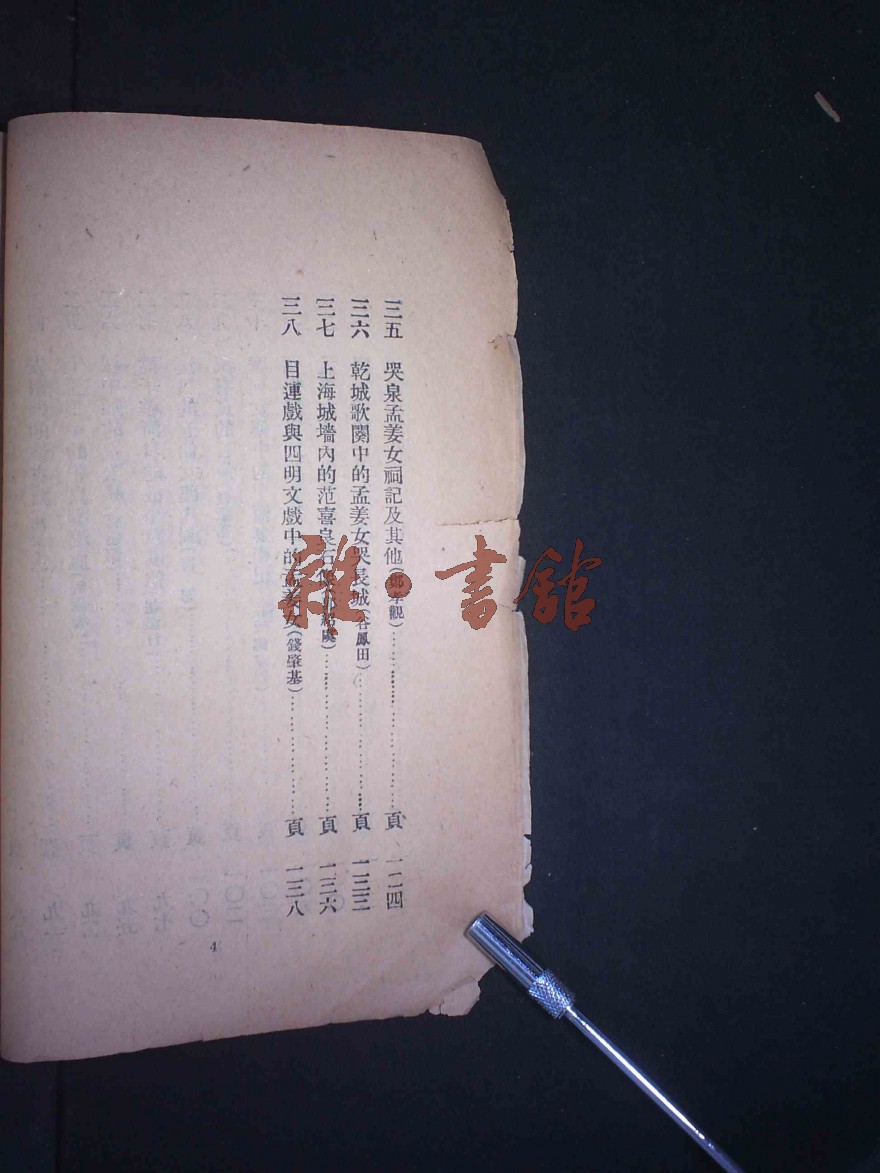 三五 哭泉孟姜女祠記及其他(鄭孝觀)……………………頁 一二四
三六 乾城歌關中的孟姜女哭長城(谷鳳田)……………………頁 一三三
三七 上海城墻內的范喜良石像 虞)……………………頁 一三六
三八 目連戲與四明文戲中的孟姜女(錢肇基)……………………頁 一三八
4
雜·書館